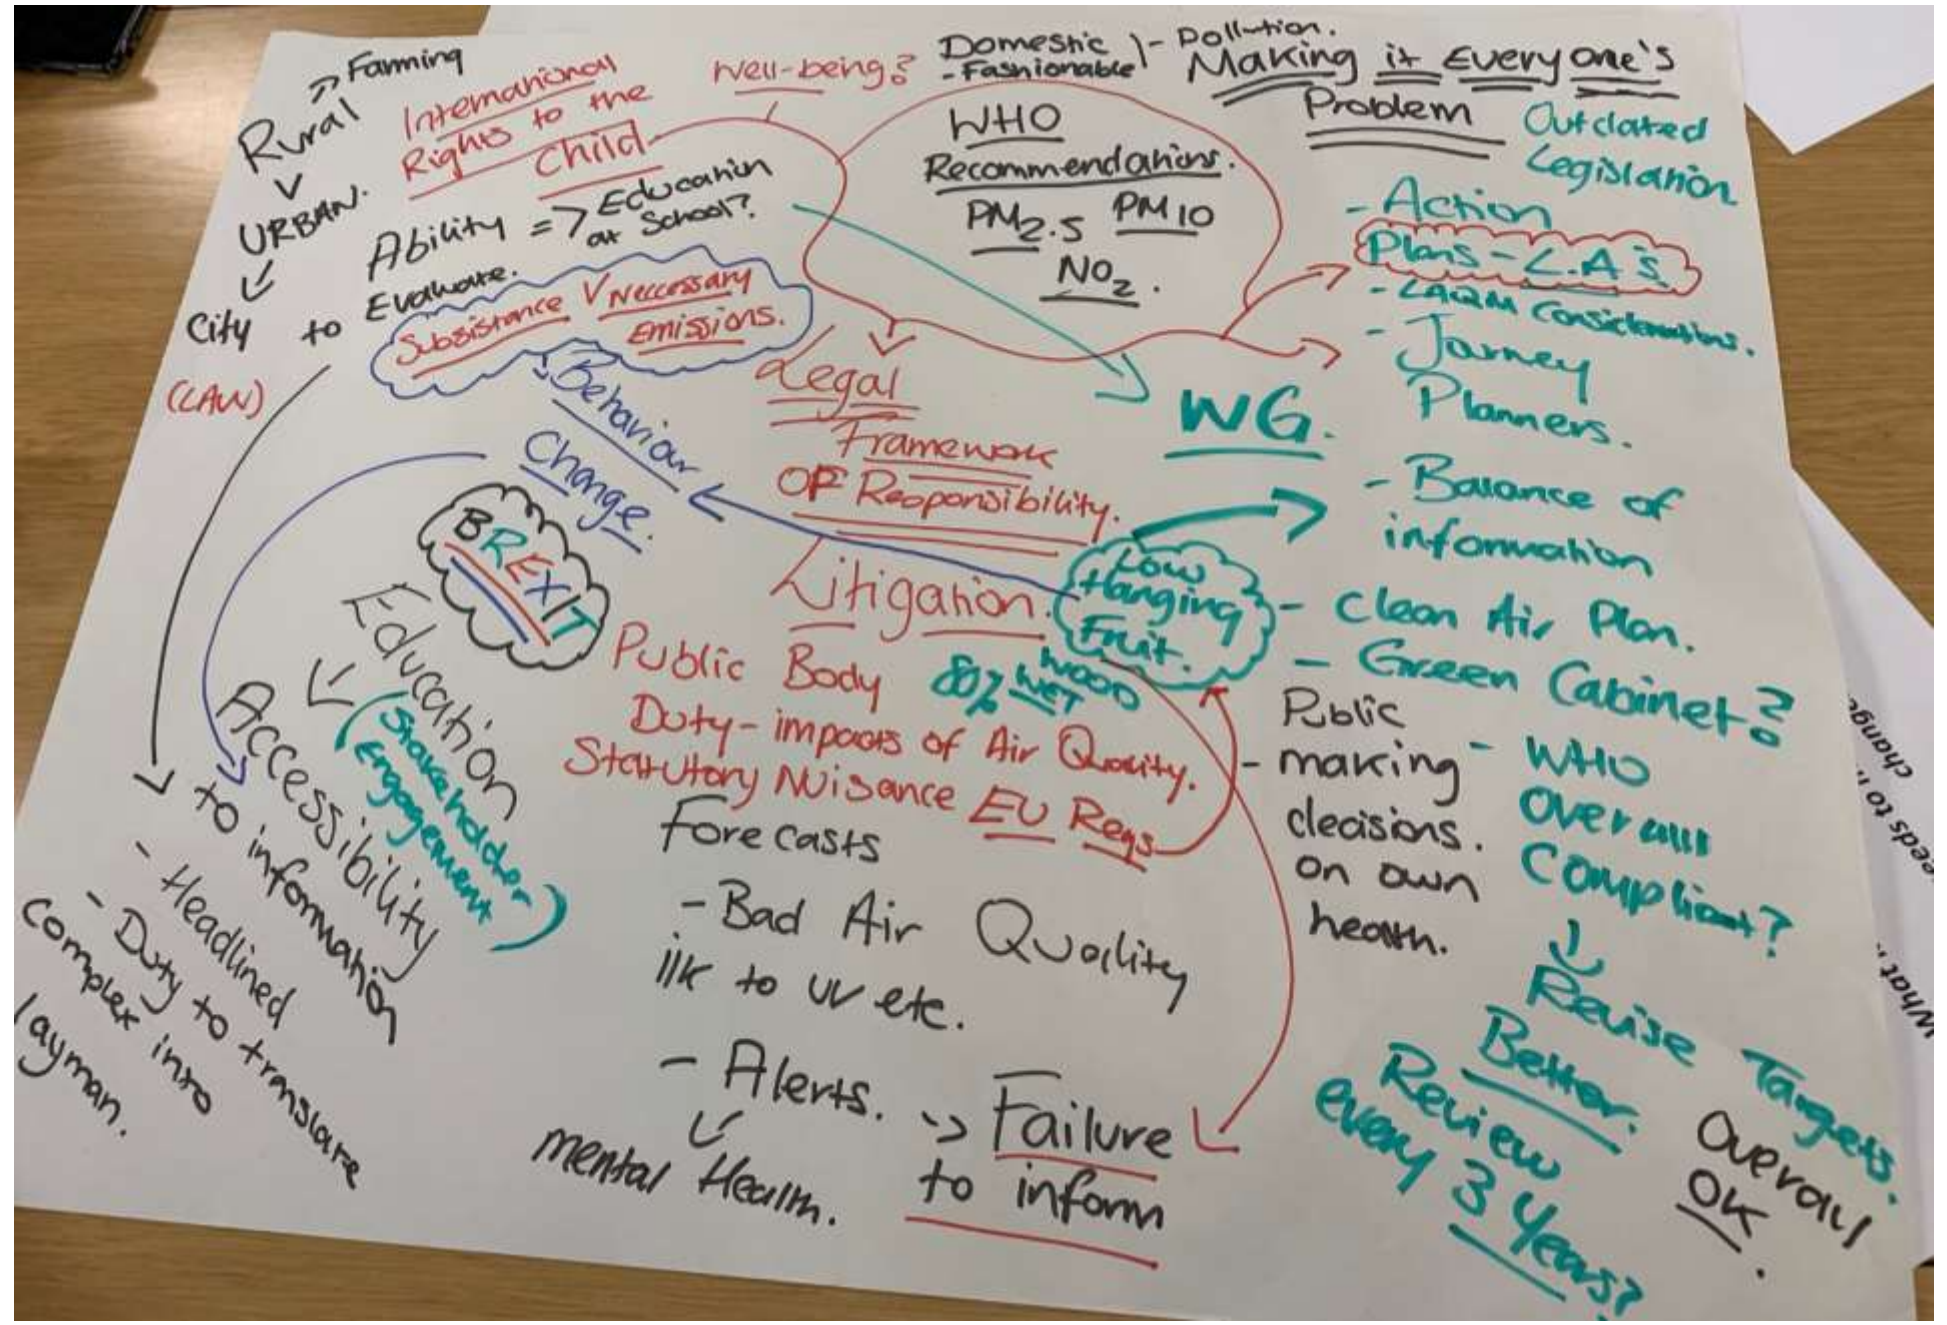 Farming
Rural
V
URBAN.
City
(LAW)
International
Rights to the
Child
well-being?
Domestic
- Fashionable
- Pollution.
Making it Everyone's
Problem
WHO
Recommendations.
PM2.5 PM10
NO2.
Ability => Education
at School?
to Evaluate.
Subsistance V Neccessary
Emissions.
Behaviour
Change.
BREXIT
Legal
Framework
OF Responsibility.
Litigation.
Public Body
Duty - impacts of Air Quality.
Statutory Nuisance EU Regs
80% WET
WOOD
Low
Hanging
Fruit.
WG.
Outdated
Legislation
- Action
Plans - L.A's
- LAQM Considerations.
- Journey
Planners.
- Balance of
information
- Clean Air Plan.
- Green Cabinet?
- WHO
Overall
Compliant?
Revise Targets.
Better.
Review
every 3 Years?
Overall
OK.
Public
- making
decisions.
on own
health.
Education
(Stakeholder
Engagement)
Accessibility
to information
- Headlined
- Duty to translate
complex into
layman.
Forecasts
- Bad Air Quality
ilk to uv etc.
- Alerts. -> Failure
to inform
mental Health.
change
eeds to
What